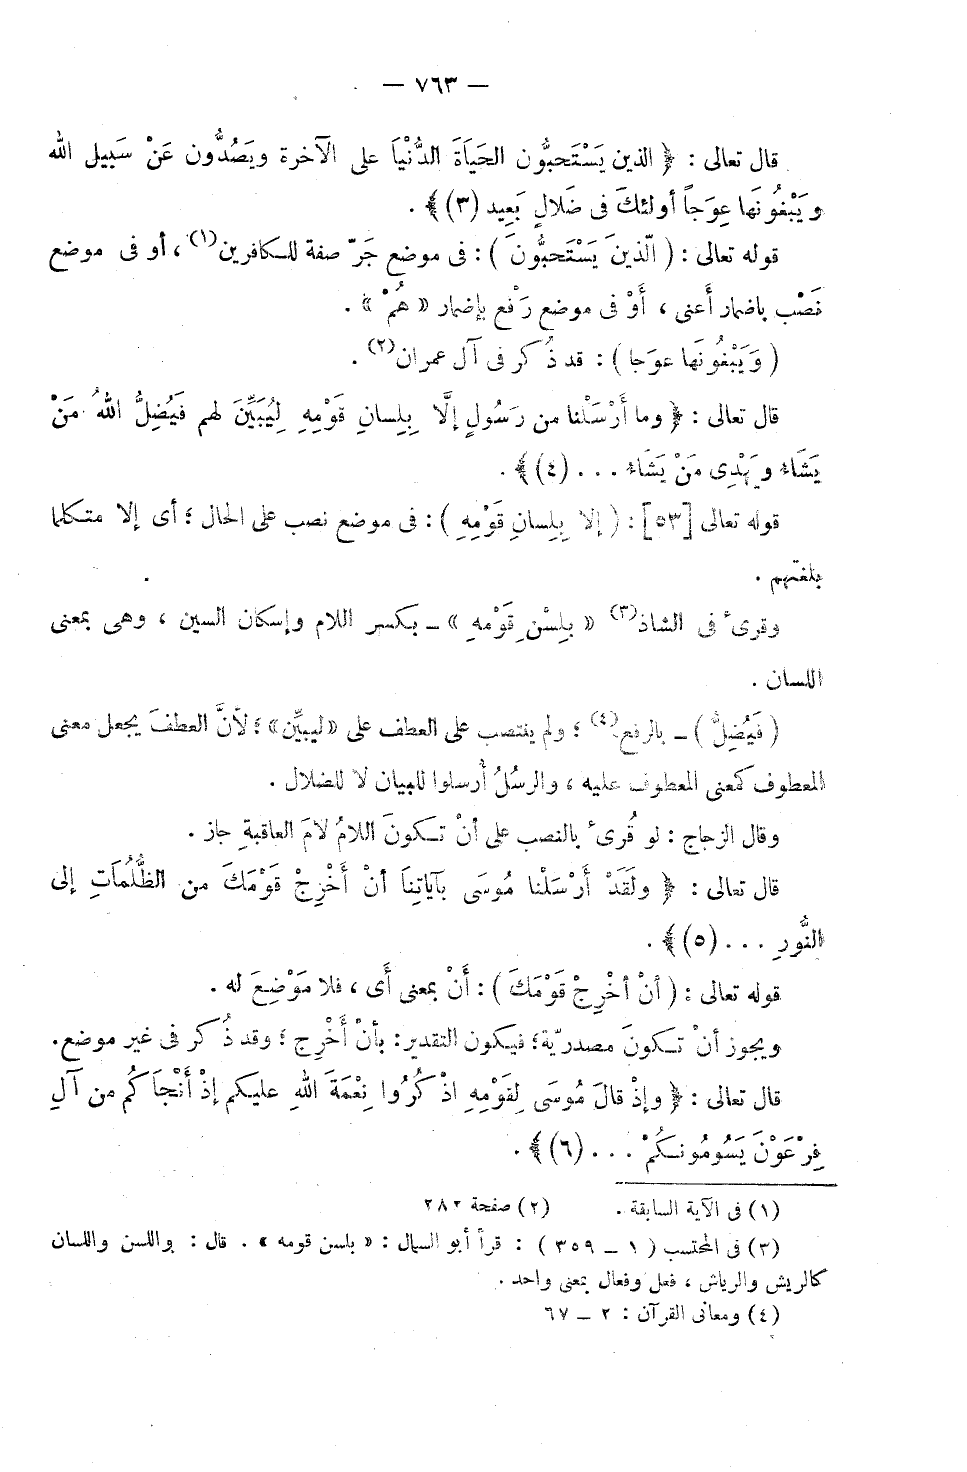 — ٧٦٣ —
قال تعالى : ﴿ الذين يَسْتَحبُّون الحَيَاةَ الدُّنْيَا على الآخرة ويَصُدُّون عَنْ سَبيل الله
ويَبْغُونَها عِوَجاً أولئكَ فى ضَلالٍ بَعِيد (٣)﴾ .
قوله تعالى : ( الّذينَ يَسْتَحبُّونَ ) : فى موضع جَرّ صفة للكافرين(١) ، أو فى موضع
نَصْب باضمار أَعنى ، أَوْ فى موضع رَفْع بإضمار « هُمْ » .
( وَيَبْغُونَها عوَجا ) : قد ذُكر فى آل عمران(٢) .
قال تعالى : ﴿ وما أَرْسَلْنا من رَسُولٍ إلَّا بِلِسانِ قَوْمِهِ لِيُبَيِّنَ لهم فَيُضِلُّ اللهُ مَنْ
يَشَاء ويَهْدِى مَنْ يَشَاء . . . (٤)﴾ .
قوله تعالى [٥٣] : ( إلا بِلِسانِ قَوْمِهِ ) : فى موضع نصب على الحال ؛ أى إلا متكلما
بلغتهم .
وقرىء فى الشاذ(٣) « بِلِسْنِ قَوْمهِ » ــ بكسر اللام وإسكان السين ، وهى بمعنى
اللسان .
( فَيُضِلُّ ) ــ بالرفع(٤) ؛ ولم ينتصب على العطف على «ليبيِّن» ؛ لأنَّ العطفَ يجعل معنى
المعطوف كمعنى المعطوف عليه ، والرسُلُ أُرسلوا للبيان لا للضلال .
وقال الزجاج : لو قُرىء بالنصب على أنْ تكونَ اللامُ لامَ العاقبةِ جاز .
قال تعالى : ﴿ ولَقَدْ أَرْسَلْنا مُوسَى بآيَاتِنَا أنْ أَخْرِجْ قَوْمَكَ من الظُّلُمَاتِ إلى
النُّورِ . . . (٥)﴾ .
قوله تعالى : ( أنْ أخْرِجْ قَوْمَكَ ) : أَنْ بمعنى أَى ، فلا مَوْضِعَ له .
ويجوز أنْ تكونَ مصدريّة؛ فيكون التقدير: بأنْ أَخْرِج ؛ وقد ذُكر فى غير موضع.
قال تعالى : ﴿ وإذْ قالَ مُوسَى لِقَوْمِهِ اذْكُرُوا نِعْمَةَ اللهِ عليكم إذْ أَنْجَاكُم من آلِ
فِرْعَوْنَ يَسُومُونَكُمْ . . . (٦)﴾ .
(١) فى الآية السابقة . (٢) صفحة ٢٨٢
(٣) فى المحتسب ( ١ ــ ٣٥٩ ) : قرأ أبو السمال : « بلسن قومه » . قال : واللسن واللسان
كالريش والرياش ، فعل وفعال بمعنى واحد .
(٤) ومعانى القرآن : ٢ ــ ٦٧